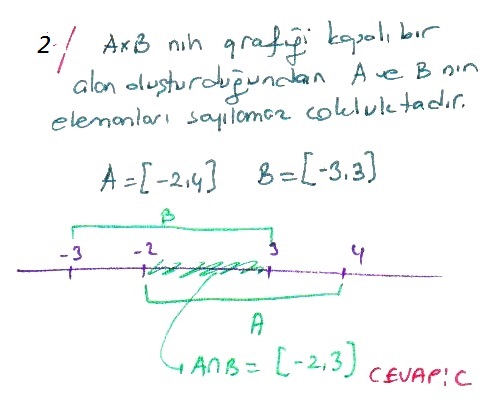 2-/ AxB nin grafiği kapalı bir
alan oluşturduğundan A ve B nin
elemanları sayılamaz çokluktadır.
A=[-2,4] B=[-3,3]
B
-3 -2 3 4
A
A∩B = [-2,3] CEVAP:C